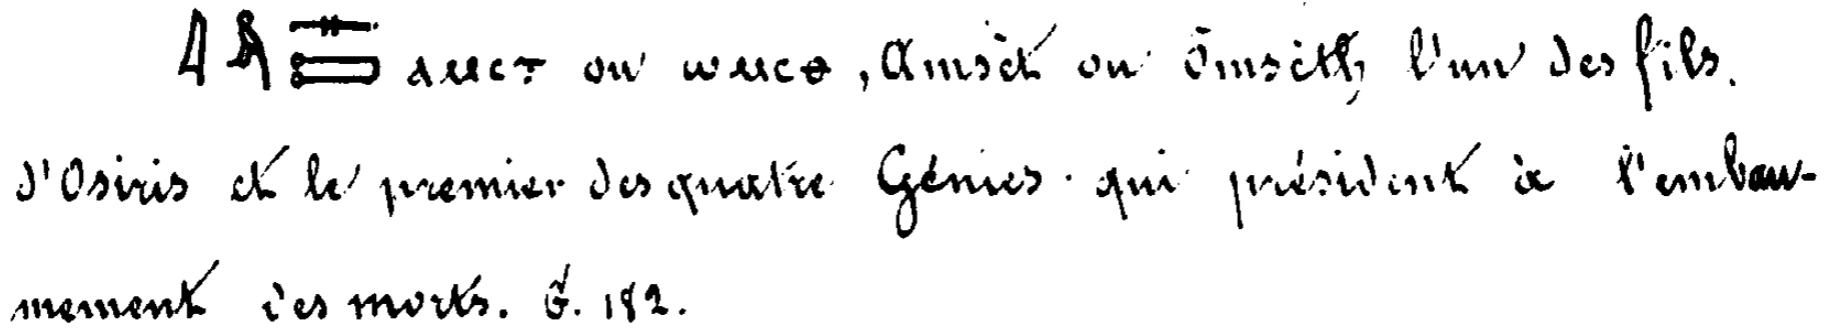 ⲁⲙⲥⲧ ou ⲱⲙⲥⲑ, Amsèt ou Ômsèth, l'un des fils
d'Osiris et le premier des quatre Génies qui président à l'embau-
mement des morts. G. 182.